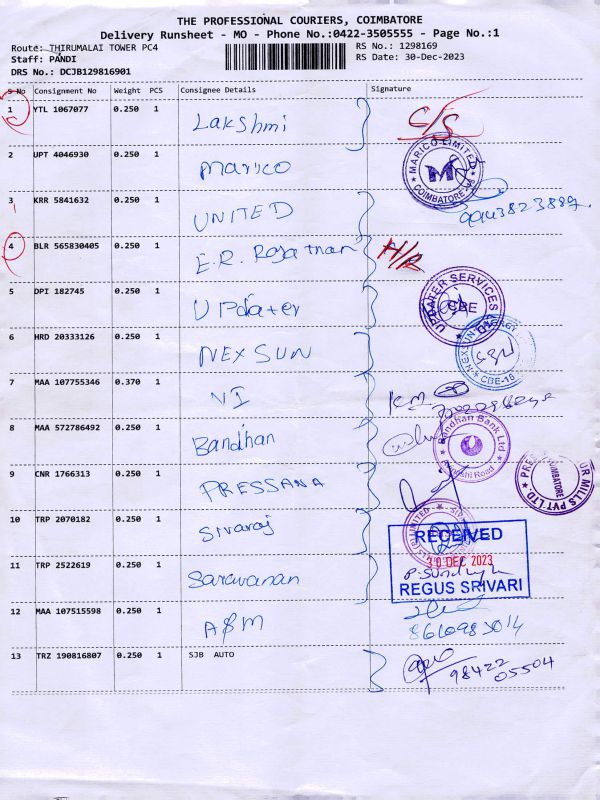 THE PROFESSIONAL COURIERS, COIMBATORE
Delivery Runsheet - MO - Phone No.:0422-3505555 - Page No.:1
Route: THIRUMALAI TOWER PC4 RS No.: 1298169
Staff: PANDI RS Date: 30-Dec-2023
DRS No.: DCJB129816901
S No Consignment No Weight PCS Consignee Details Signature
1 YTL 1067077 0.250 1 Lakshmi C/S
2 UPT 4046930 0.250 1 Marico
MARICO LIMITED
M
COIMBATORE
3 KRR 5841632 0.250 1 UNITED
4 BLR 565830405 0.250 1 E.R. H/R
5 DPI 182745 0.250 1 Updater
UPDATER SERVICES
CBE
6 HRD 20333126 0.250 1 NEXSUN
CBE-18
7 MAA 107755346 0.370 1 VI
8 MAA 572786492 0.250 1 Bandhan
Bandhan Bank Ltd
Road
9 CNR 1766313 0.250 1 PRESSANA
MILLS PVT LTD.
COIMBATORE
10 TRP 2070182 0.250 1 Sivaraj
RECEIVED
30 DEC 2023
REGUS SRIVARI
11 TRP 2522619 0.250 1 Saravanan
12 MAA 107515598 0.250 1 A&M
13 TRZ 190816807 0.250 1 SJB AUTO
98422
05504